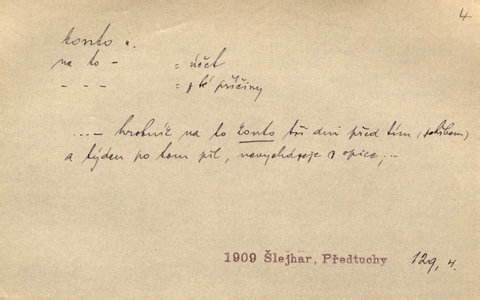 4
konto n.
na to - = účet
- - - = z té příčiny
...– hrobník na to konto tři dni před tím,
a týden po tom pil, nevycházeje z opice,–
1909 Šlejhar, Předtuchy 129, 4.